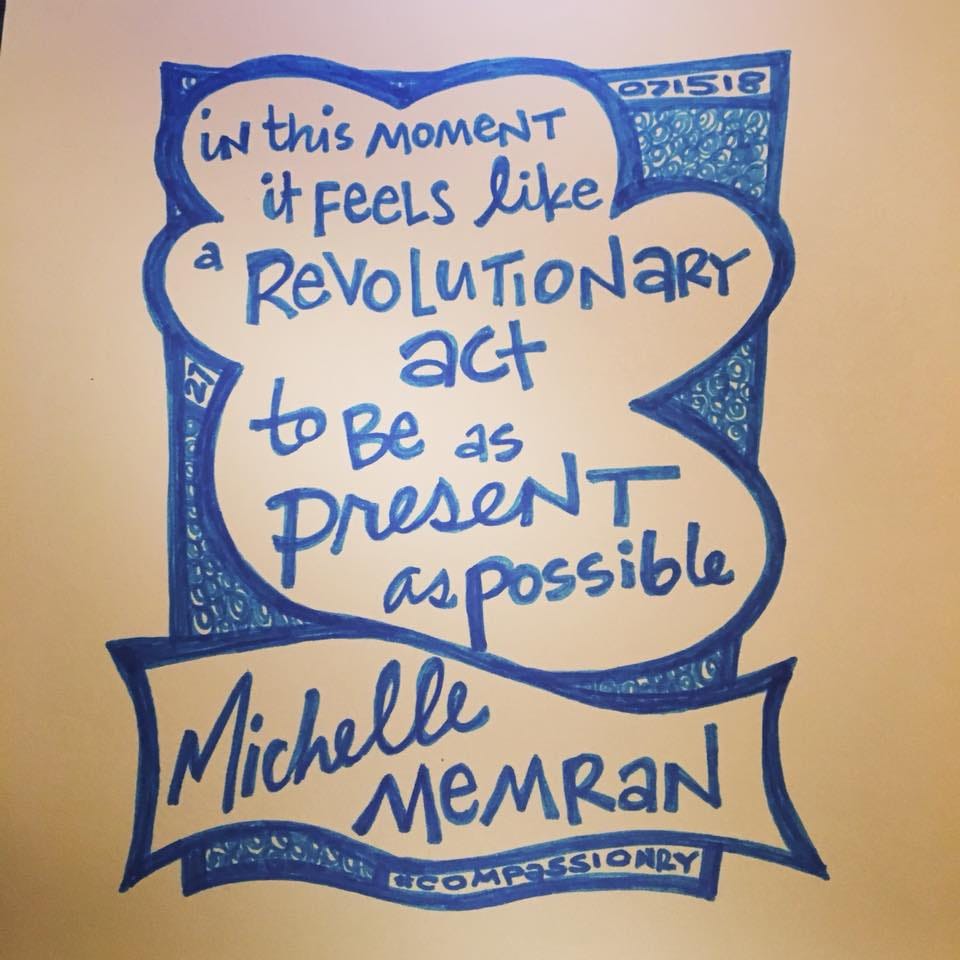 071518
in this MOMENT
it FEELS like
a REVOLUTIONARY
act
to Be as
present
as possible
27
Michelle
MEMRAN
#COMPASSIONRY